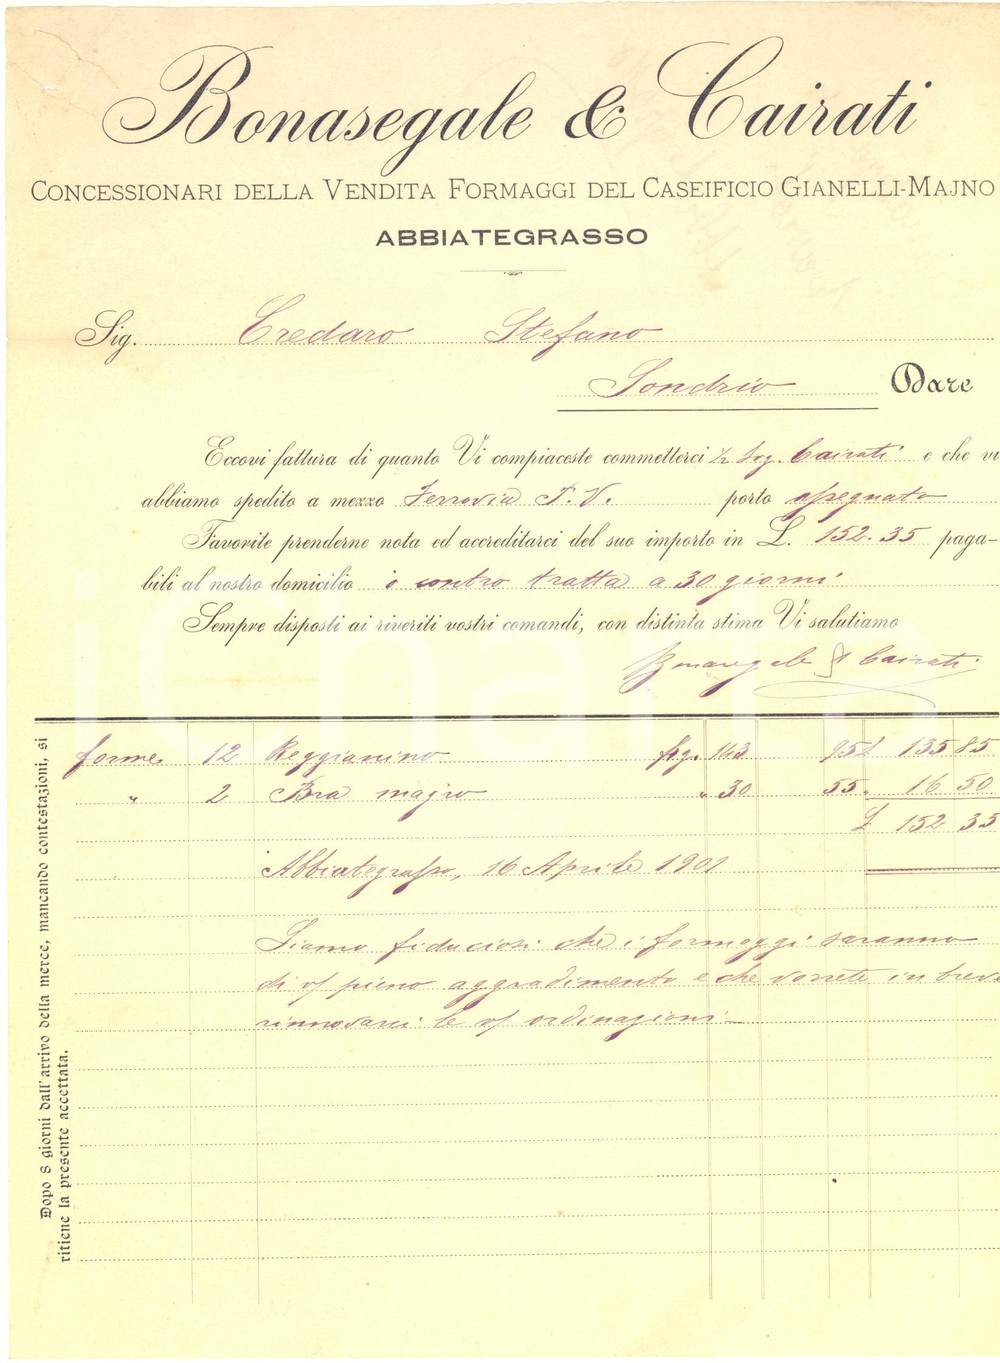 Bonasegale & Cairati
CONCESSIONARI DELLA VENDITA FORMAGGI DEL CASEIFICIO GIANELLI-MAJNO
ABBIATEGRASSO
Sig. Credaro Stefano
Sondrio Dare
Eccovi fattura di quanto Vi compiaceste commetterci ½ Sig. Cairati e che vi
abbiamo spedito a mezzo Ferrovia P. V. porto assegnato
Favorite prenderne nota ed accreditarci del suo importo in L. 152.35 paga-
bili al nostro domicilio o contro tratta a 30 giorni
Sempre disposti ai riveriti vostri comandi, con distinta stima Vi salutiamo
Bonasegale & Cairati
forme 12 Reggianino Kg. 143 95 £ 135 85
" 2 Bra magro " 30 55 " 16 50
£ 152 35
Abbiategrasso, 16 Aprile 1901
Siamo fiduciosi che i formaggi saranno
di v/ pieno aggradimento e che vorrete in breve
rinnovarci le v/ ordinazioni.
Dopo 8 giorni dall'arrivo della merce, mancando contestazioni, si
ritiene la presente accettata.